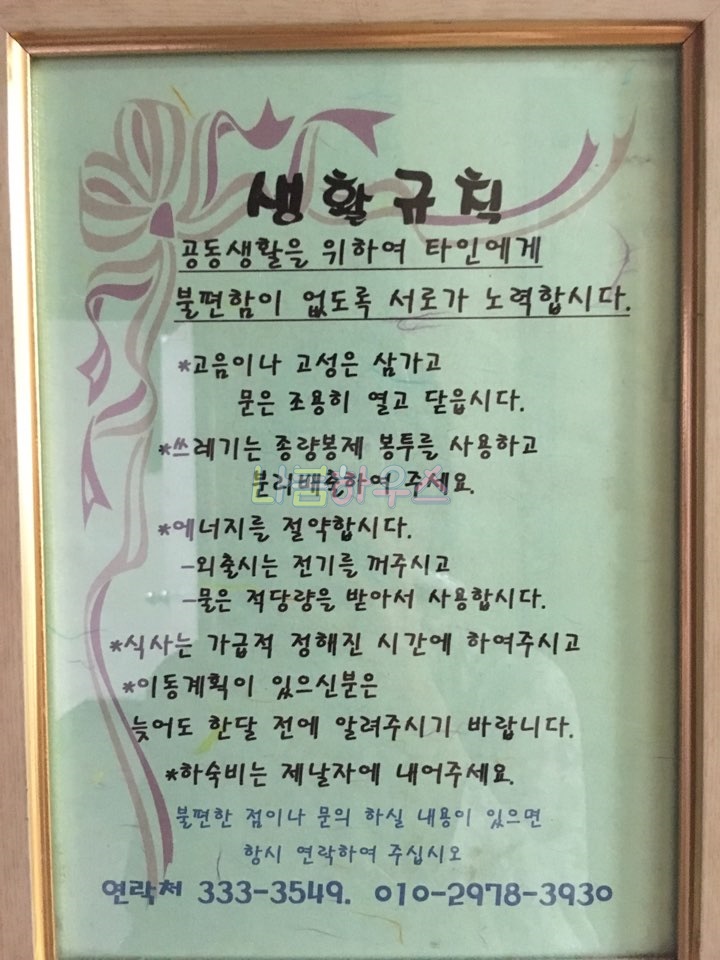 생활규칙
공동생활을 위하여 타인에게
불편함이 없도록 서로가 노력합시다.
*고음이나 고성은 삼가고
문은 조용히 열고 닫읍시다.
*쓰레기는 종량봉제 봉투를 사용하고
나눔하우스
분리배출하여 주세요.
*에너지를 절약합시다.
-외출시는 전기를 꺼주시고
-물은 적당량을 받아서 사용합시다.
*식사는 가급적 정해진 시간에 하여주시고
*이동계획이 있으신분은
늦어도 한달 전에 알려주시기 바랍니다.
*하숙비는 제날자에 내어주세요.
불편한 점이나 문의 하실 내용이 있으면
항시 연락하여 주십시오
연락처 333-3549. 010-2978-3930